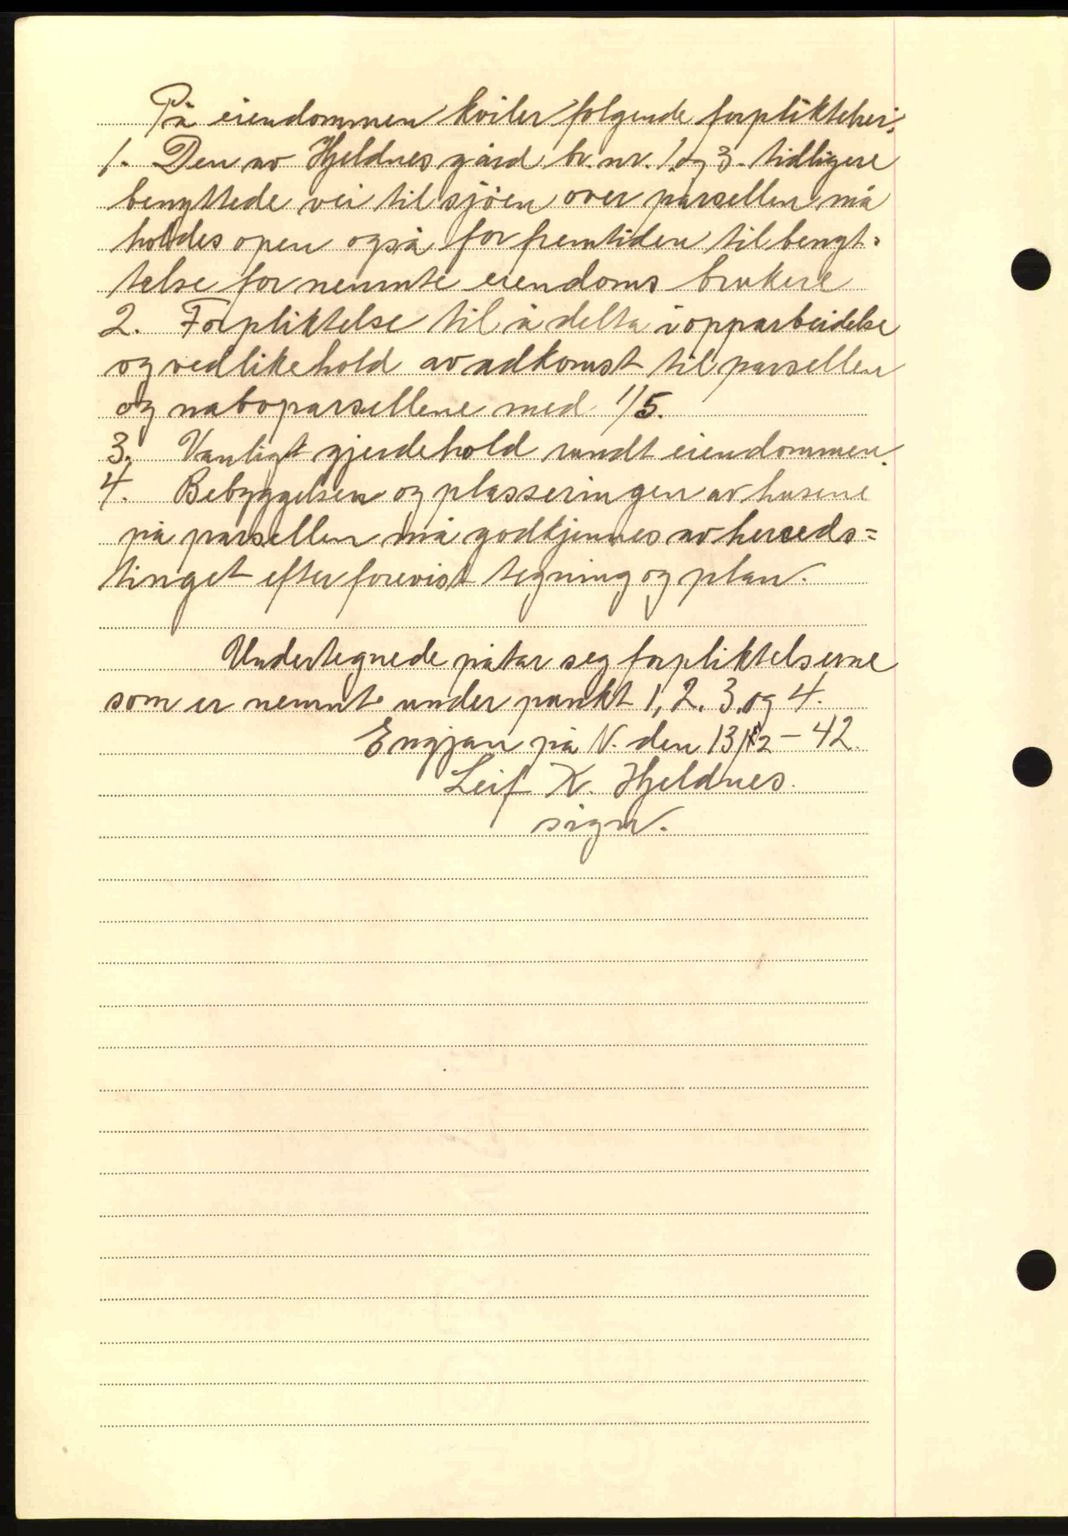 På eiendommen kviler følgende forpliktelser:
1. Den av Hjeldnes gård br. nr. 1 og 3. tidligere
benyttede vei til sjöen over parsellen må
holdes open også for fremtiden til benyt-
telse for nemnte eiendoms brukere
2. Forpliktelse til å delta i opparbeidelse
og vedlikehold av adkomst til parsellen
og naboparsellene med 1/5.
3. Vanligt gjerdehold rundt eiendommen.
4. Bebyggelsen og plasseringen av husene
på parsellen må godkjennes av herreds=
tinget efter forevist tegning og plan.
Undertegnede påtar seg forpliktelserne
som er nemnt under punkt 1, 2. 3. og 4.
Engjan på N. den 13/12 - 42.
Leif K. Hjeldnes.
sign.